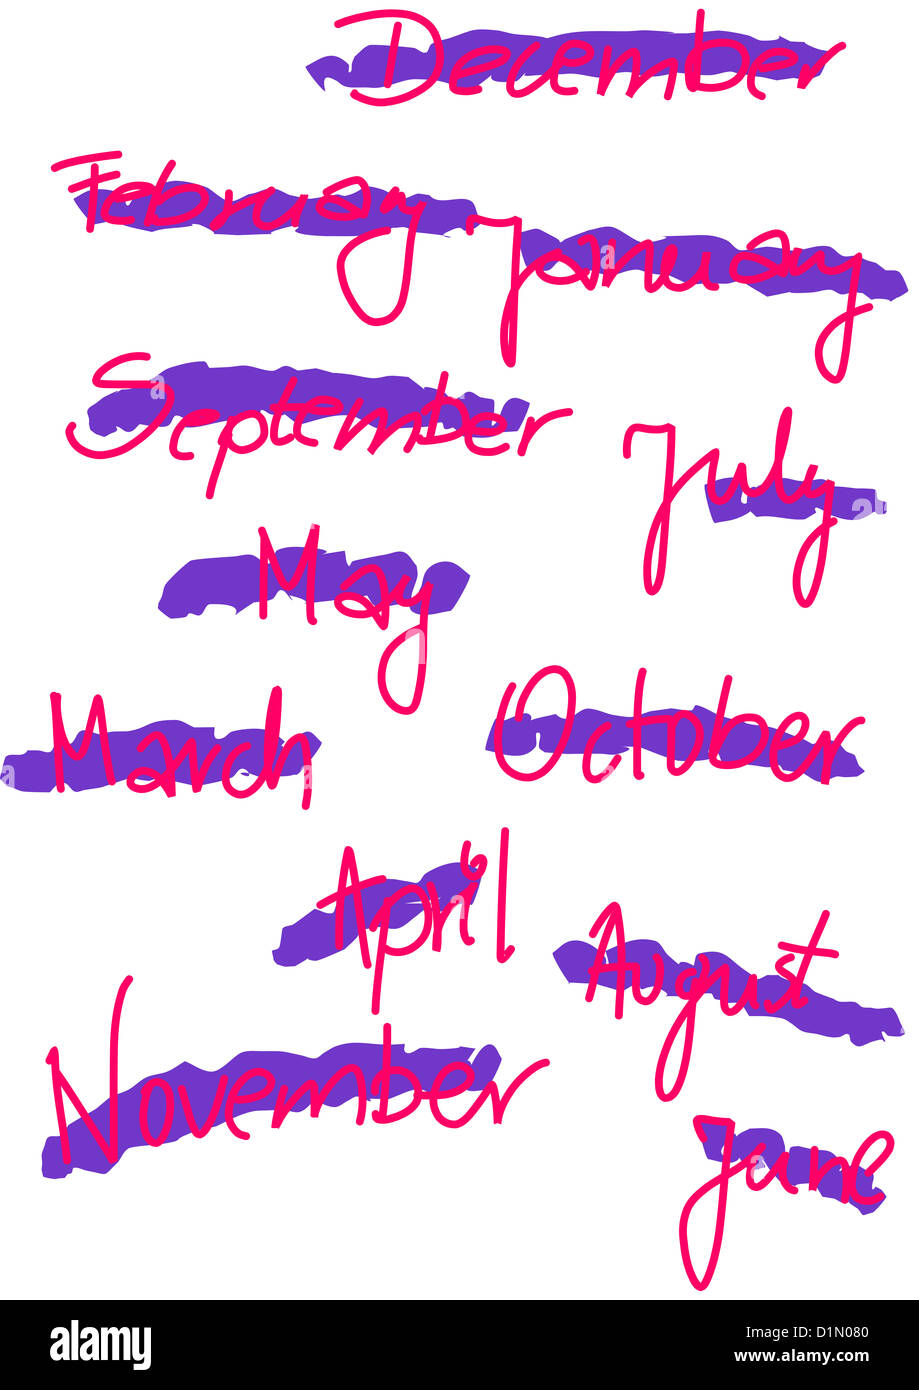 December
February
January
September
July
May
March
October
April
August
November
June
alamy
Image ID: D1N080
www.alamy.com